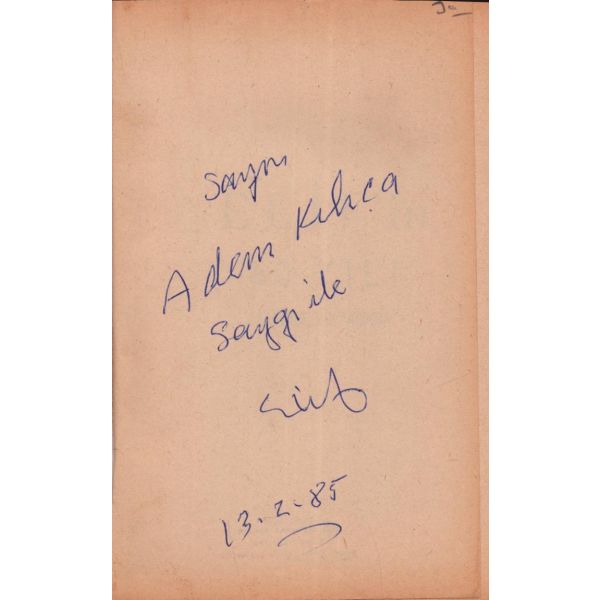 Sayın
Adem Kılıça
Saygı ile
13.2.85